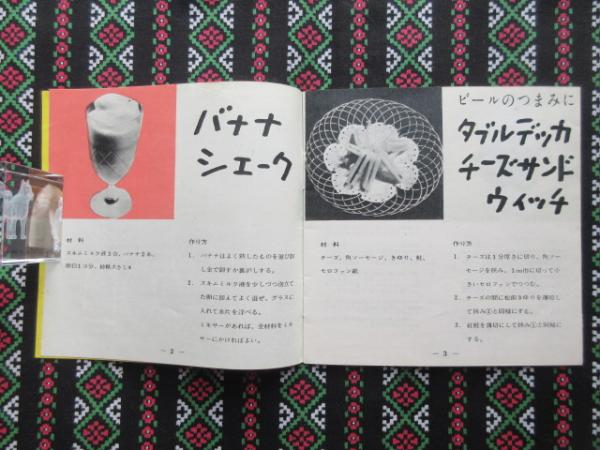 バナナ
シェーク
材料
スキムミルク液3合、バナナ2本、
作り方
1. バナナはよく熟したものを選び裏
2. スキムミルク液を少しづつ泡立て
た卵に加えてよく混ぜ、グラスに
入れて氷片を浮べる。
ミキサーがあれば、全材料をミキ
サーにかければよい。
— 2 —
ビールのつまみに
ダブルデッカ
チーズサンド
ウィッチ
材料
チーズ、角ソーセージ、きゆり、鮭、
セロファン紙
作り方
1. チーズは1分厚さに切り、角ソー
セージを挟み、1cm角に切って小
さいセロファンでつつむ。
2. チーズの間に胡瓜きゆりを薄切し
て挟み①と同様にする。
3. 紅鮭を薄切にして挟み①と同様に
する。
— 3 —